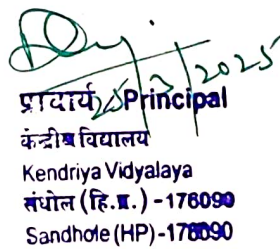 25/3/2025
प्राचार्य/Principal
केंद्रीय विद्यालय
Kendriya Vidyalaya
संधोल (हि.प्र.) -176090
Sandhole (HP)-176090